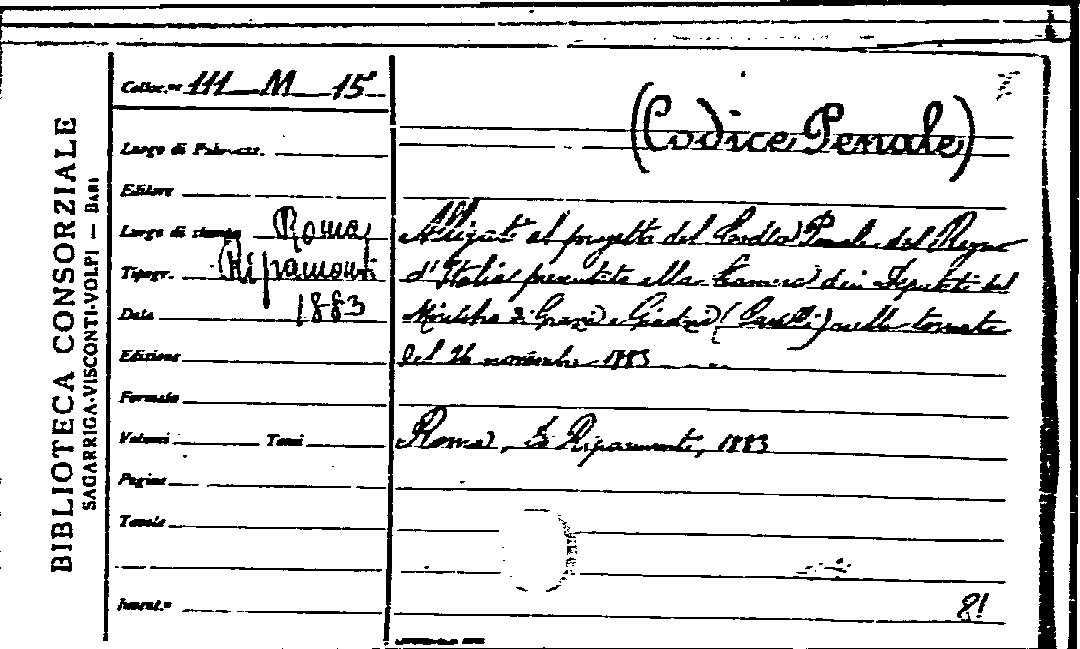 BIBLIOTECA CONSORZIALE
SAGARRIGA-VISCONTI-VOLPI — BARI
Colloc.ne 111 M 15
Luogo di Pubblicaz.
Editore
Luogo di stampa Roma,
Tipogr. Ripamonti
Data 1883
Edizione
Formato
Volumi Tomi
Pagine
Tavole
Invent.ne
(Codice Penale)
Allegati al progetto del Codice Penale del Regno
d'Italia presentato alla Camera dei Deputati dal
Ministro di Grazia e Giustizia (Savelli) nella tornata
del 26 novembre 1883
Roma, Ripamonti, 1883
8!